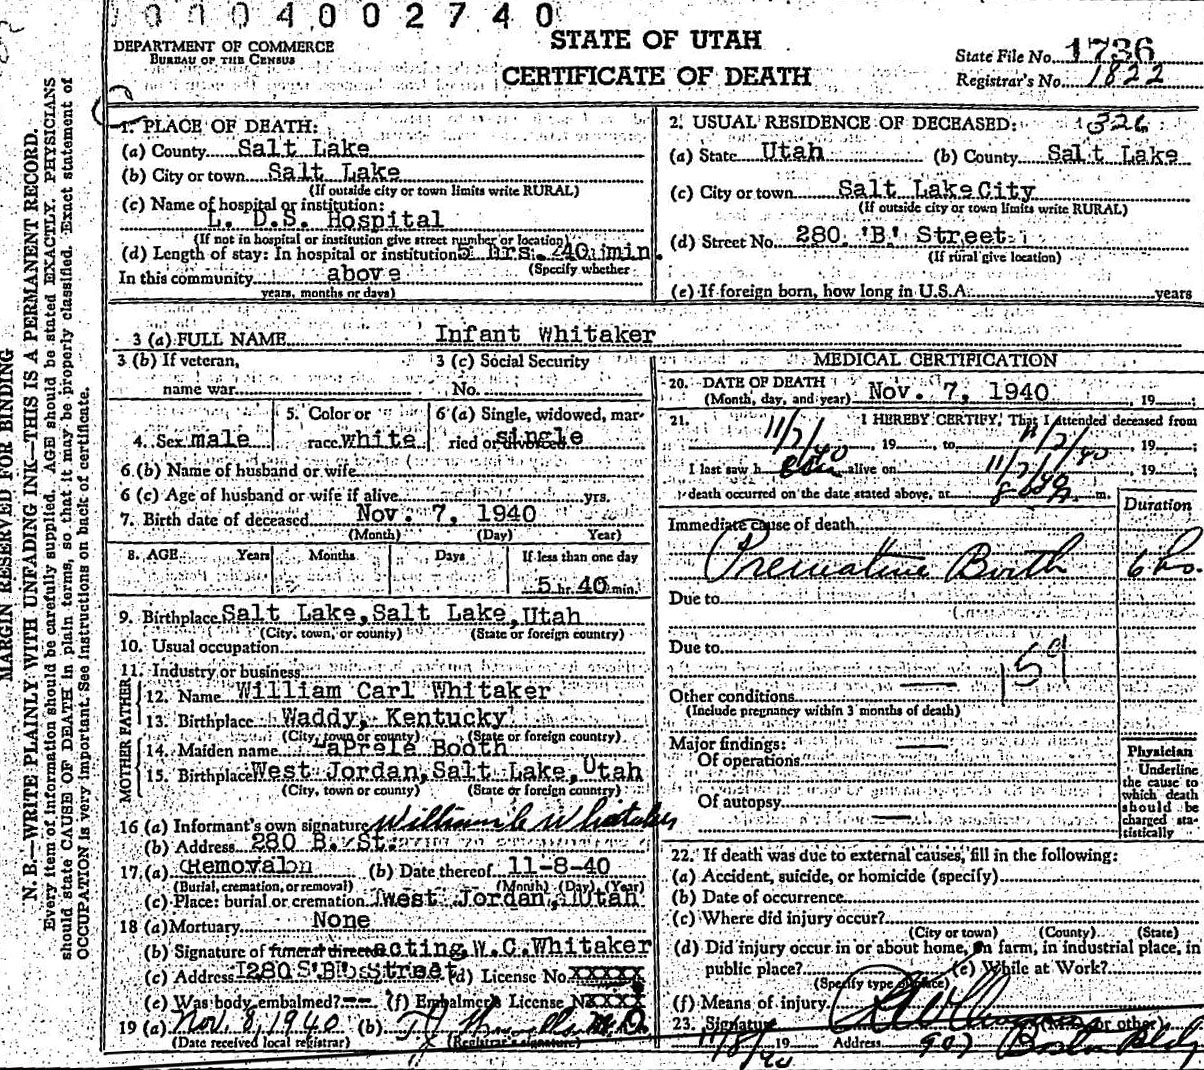 0 0 0 4 0 0 2 7 4 0
DEPARTMENT OF COMMERCE
BUREAU OF THE CENSUS
STATE OF UTAH
CERTIFICATE OF DEATH
State File No. 1736
Registrar's No. 1822
MARGIN RESERVED FOR BINDING
N. B.—WRITE PLAINLY WITH UNFADING INK—THIS IS A PERMANENT RECORD.
Every item of information should be carefully supplied. AGE should be stated EXACTLY. PHYSICIANS
should state CAUSE OF DEATH in plain terms, so that it may be properly classified. Exact statement of
OCCUPATION is very important. See instructions on back of certificate.
1. PLACE OF DEATH:
(a) County Salt Lake
(b) City or town Salt Lake
(If outside city or town limits write RURAL)
(c) Name of hospital or institution:
L. D.S. Hospital
(If not in hospital or institution give street number or location)
(d) Length of stay: In hospital or institution 5 hrs. 40 min.
(Specify whether
In this community above
years, months or days)
2. USUAL RESIDENCE OF DECEASED: 326
(a) State Utah (b) County Salt Lake
(c) City or town Salt Lake City
(If outside city or town limits write RURAL)
(d) Street No. 280 'B' Street
(If rural give location)
(e) If foreign born, how long in U.S.A. years
3 (a) FULL NAME Infant Whitaker
3 (b) If veteran, 3 (c) Social Security
name war No.
4. Sex male 5. Color or race white 6 (a) Single, widowed, married or divorced single
6. (b) Name of husband or wife
6 (c) Age of husband or wife if alive yrs.
7. Birth date of deceased Nov. 7, 1940
(Month) (Day) (Year)
8. AGE Years Months Days If less than one day
5 hr. 40 min.
9. Birthplace Salt Lake, Salt Lake, Utah
(City, town, or county) (State or foreign country)
10. Usual occupation
11. Industry or business
FATHER
12. Name William Carl Whitaker
13. Birthplace Waddy, Kentucky
(City, town or county) (State or foreign country)
MOTHER
14. Maiden name LaPrele Booth
15. Birthplace West Jordan, Salt Lake, Utah
(City, town or county) (State or foreign country)
16 (a) Informant's own signature William C Whitaker
(b) Address 280 B. St.
17. (a) Removal (b) Date thereof 11-8-40
(Burial, cremation, or removal) (Month) (Day) (Year)
(c) Place: burial or cremation West Jordan, Utah
18 (a) Mortuary None
(b) Signature of funeral director acting, W.C. Whitaker
(c) Address 280 'B' Street (d) License No. XXXXX
(e) Was body embalmed? -- (f) Embalmer's License No XXXX
19 (a) Nov. 8, 1940 (b) M.D.
(Date received local registrar) (Registrar's signature)
MEDICAL CERTIFICATION
20. DATE OF DEATH
(Month, day, and year) Nov. 7, 1940, 19
21. I HEREBY CERTIFY, That I attended deceased from
11/7/40, 19 to 11/7/40, 19
I last saw h alive on 11/7/40, 19;
death occurred on the date stated above, at m.
Duration
Immediate cause of death
Premature Birth 6 hrs.
Due to
Due to
159
Other conditions
(Include pregnancy within 3 months of death)
Major findings:
Of operations
Of autopsy
Physician
Underline
the cause to
which death
should be
charged sta-
tistically
22. If death was due to external causes, fill in the following:
(a) Accident, suicide, or homicide (specify)
(b) Date of occurrence
(c) Where did injury occur?
(City or town) (County) (State)
(d) Did injury occur in or about home, on farm, in industrial place, in
public place? (e) While at Work?
(Specify type of place)
(f) Means of injury
23. Signature (M.D. or other)
11/8/40 19 Address 907 Boston Bldg